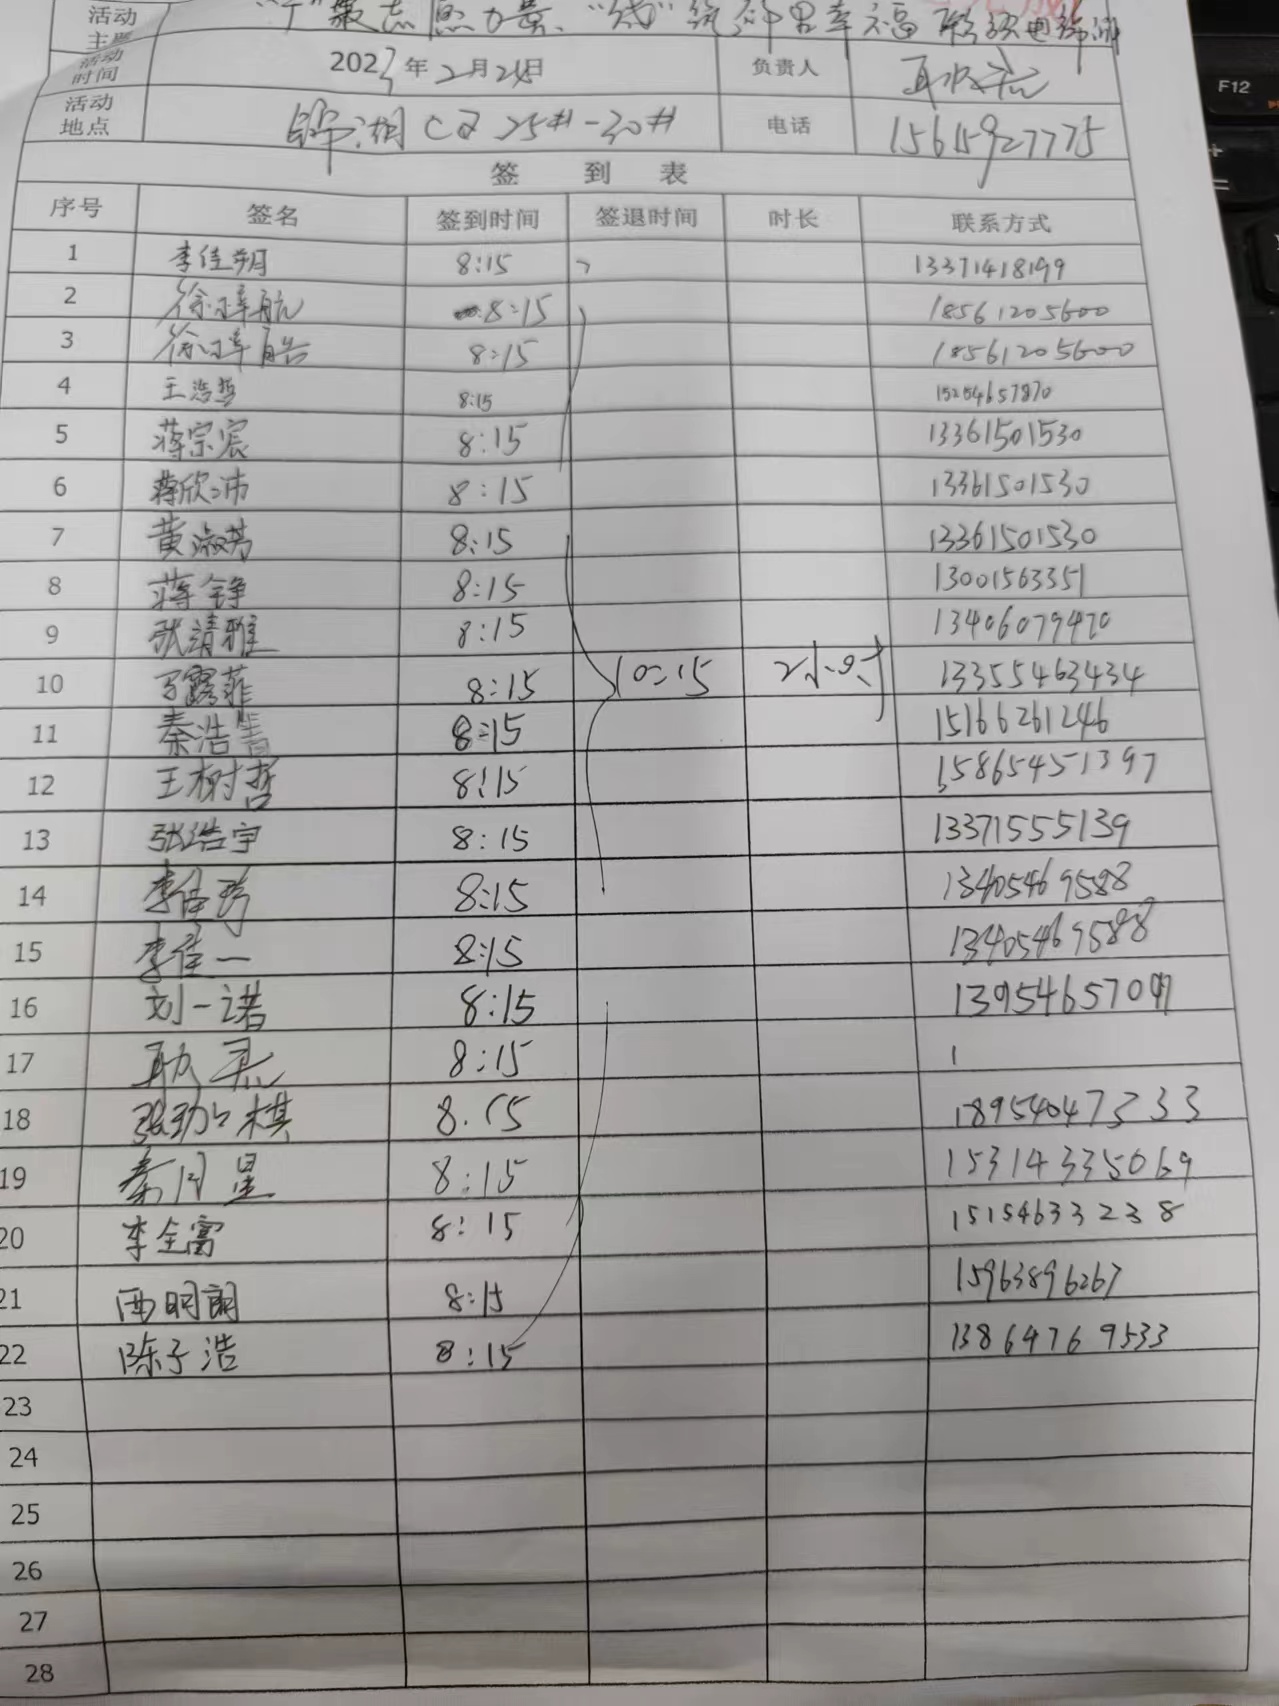 活动主题 "聚志愿力量、"线"筑邻里幸福
活动时间 2023年2月24日 负责人
活动地点 湖C区25#-30# 电话 15615927775
签到表
序号 签名 签到时间 签退时间 时长 联系方式
1 李佳朔 8:15 13371418199
2 徐梓航 8:15 18561205600
3 徐梓皓 8:15 18561205600
4 王浩哲 8:15 15254657870
5 蒋宗宸 8:15 13361501530
6 蒋欣沛 8:15 13361501530
7 黄淑芳 8:15 13361501530
8 蒋铮 8:15 13001563351
9 张靖雅 8:15 13406079470
10 露菲 8:15 10:15 2小时 13355463434
11 秦浩菁 8:15 15166261246
12 王树哲 8:15 15865451397
13 张浩宇 8:15 13371555139
14 李佳 8:15 13405469588
15 李佳一 8:15 13405469588
16 刘一诺 8:15 139546570
17 8:15 1
18 棋 8:15 18954047333
19 秦月星 8:15 15314335069
20 李全富 8:15 15154633238
21 西明朗 8:15 15963896267
22 陈子浩 8:15 13864769533
23
24
25
26
27
28
F12